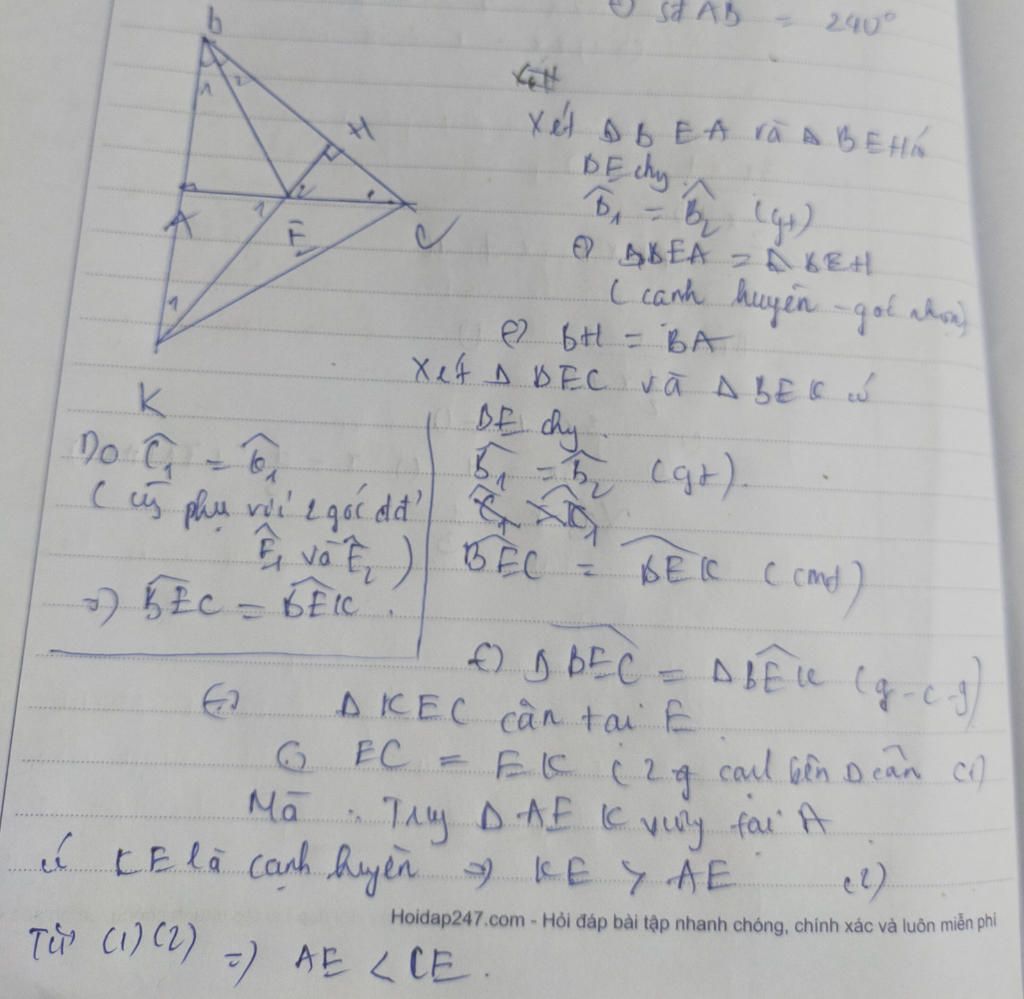 sđ AB = 240°
B
1 2
H
A
1 2
E
C
1
K
Xét Δ BEA và Δ BEH có
BE chg
B̂₁ = B̂₂ (gt)
ΔBEA = ΔBEH
(cạnh huyền - góc nhọn)
=) BH = BA
Xét Δ BEC và Δ BEK có
BE chg.
B̂₁ = B̂₂ (gt).
BÊC = BÊK (cmt)
Do Ĉ₁ =
(cùg phụ với 2 góc đđ
Ê₁ và Ê₂)
=) BÊC = BÊK.
=) ΔBEC = ΔBEK (g-c-g)
=) Δ KEC cân tại E
EC = EK (2 cạnh bên Δ cân (1)
Mà : Trong Δ AEK vuông tại A
có KE là cạnh huyền => KE > AE (2)
Hoidap247.com - Hỏi đáp bài tập nhanh chóng, chính xác và luôn miễn phí
Từ (1)(2) =) AE < CE.